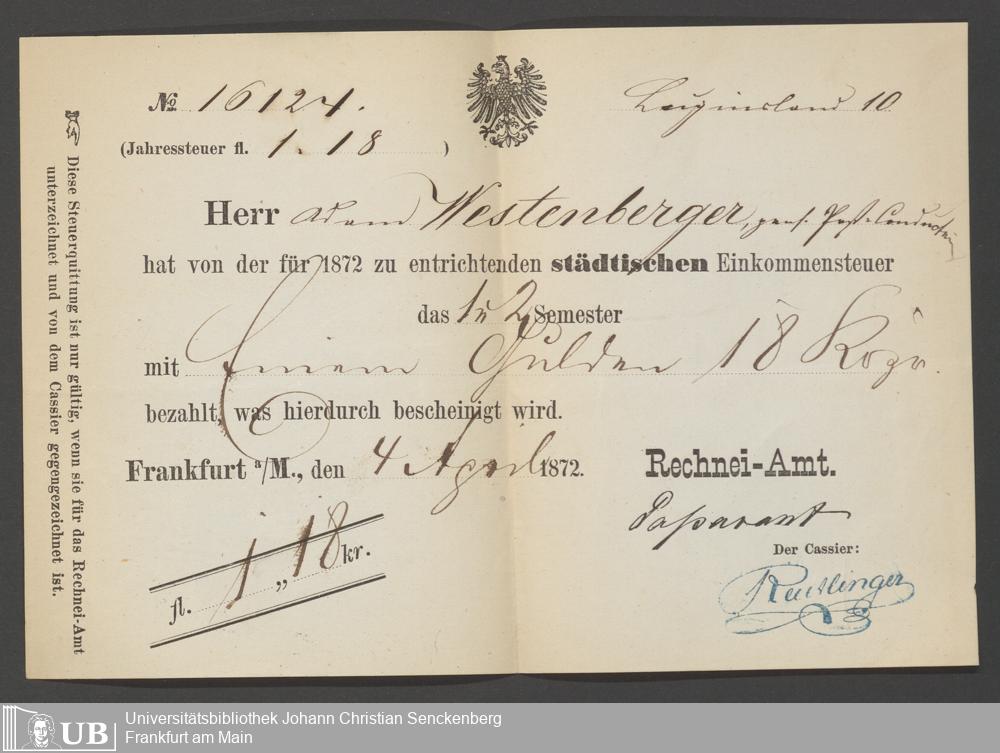 № 16124.
Luginsland 10
(Jahressteuer fl. 1. 18 )
Herr Adam Westenberger, pens. Post-Conducteur
hat von der für 1872 zu entrichtenden städtischen Einkommensteuer
das 1 u 2 Semester
mit Einem Gulden 18 Kreuzer.
bezahlt, was hierdurch bescheinigt wird.
Frankfurt a/M., den 4 April 1872.
Rechnei-Amt.
Passavant
Der Cassier:
Reutlinger
fl. 1 „ 18 kr.
Diese Steuerquittung ist nur gültig, wenn sie für das Rechnei-Amt
unterzeichnet und von dem Cassier gegengezeichnet ist.
UB
Universitätsbibliothek Johann Christian Senckenberg
Frankfurt am Main